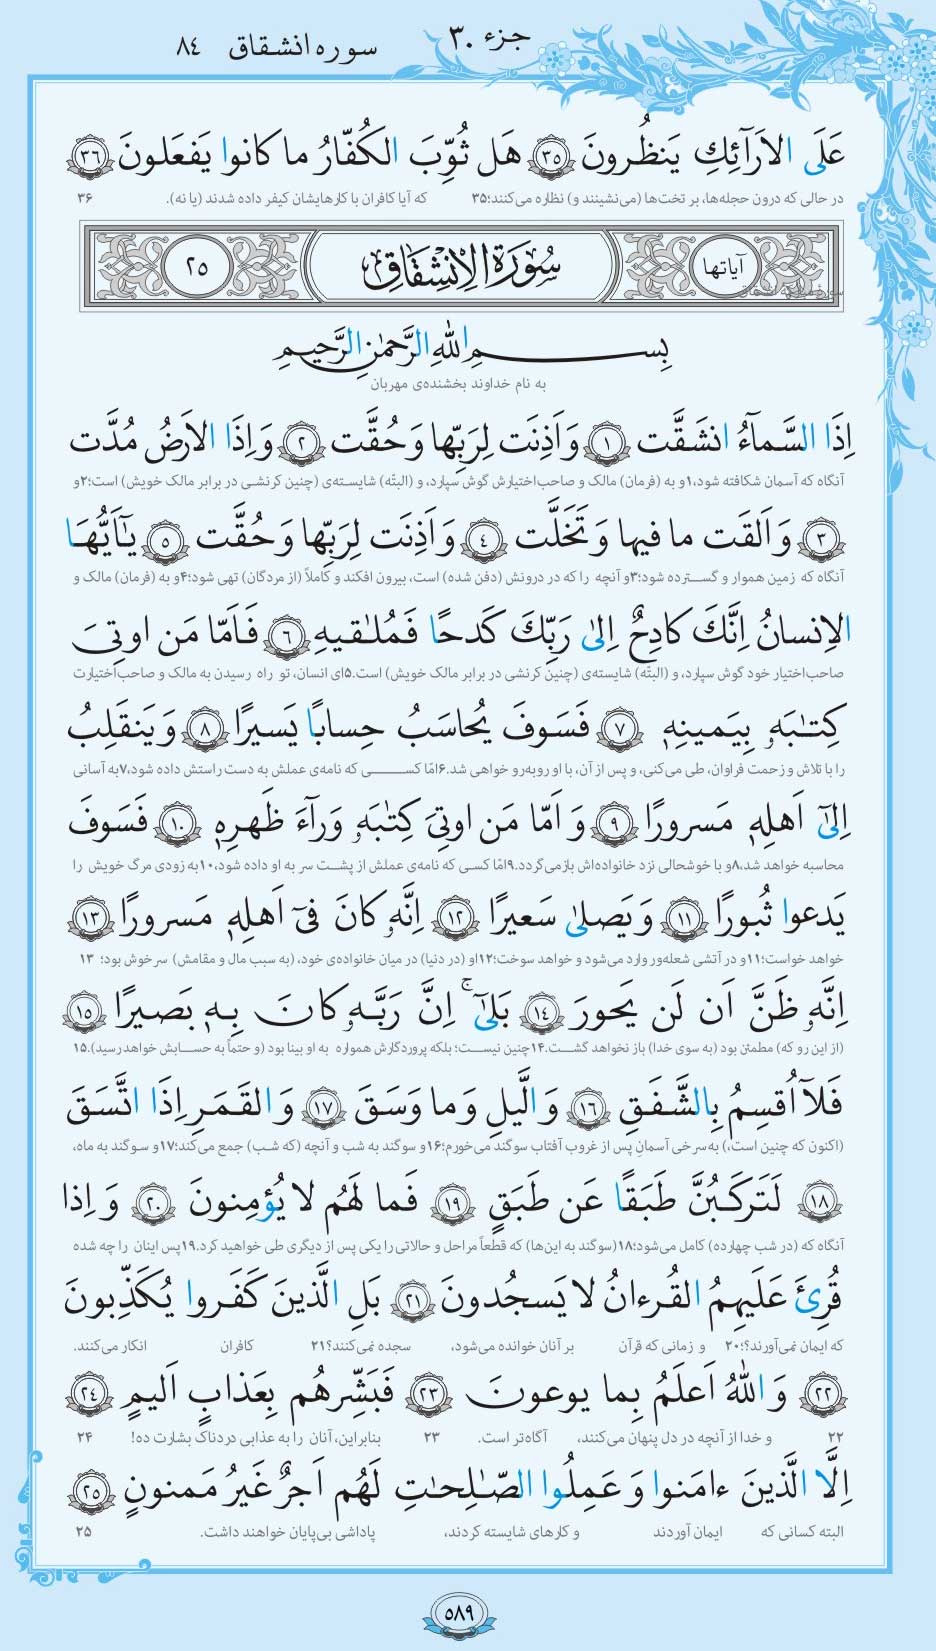 جزء ۳۰
سوره انشقاق ۸۴
عَلَى الاَرَآئِكِ يَنظُرونَ ﴿۳۵﴾ هَل ثُوِّبَ الكُفّارُ ما كانوا يَفعَلونَ ﴿۳۶﴾
در حالی که درون حجله‌ها، بر تخت‌ها (می‌نشینند و) نظاره می‌کنند؛۳۵ که آیا کافران با کارهایشان کیفر داده شدند (یا نه). ۳۶
آیاتها سُورَةُ الاِنْشِقَاقِ ۲۵
بِسمِ اللهِ الرَّحمٰنِ الرَّحيمِ
به نام خداوند بخشنده‌ی مهربان
اِذَا السَّمآءُ انشَقَّت ﴿۱﴾ وَ اَذِنَت لِرَبِّها وَ حُقَّت ﴿۲﴾ وَ اِذَا الاَرضُ مُدَّت
آنگاه که آسمان شکافته شود،۱و به (فرمان) مالک و صاحب‌اختیارش گوش سپارد، و (البتّه) شایسته‌ی (چنین کرنشی در برابر مالک خویش) است؛۲و
﴿۳﴾ وَ اَلقَت ما فيها وَ تَخَلَّت ﴿۴﴾ وَ اَذِنَت لِرَبِّها وَ حُقَّت ﴿۵﴾ يٰۤاَيُّهَا
آنگاه که زمین هموار و گسترده شود؛۳و آنچه را که در درونش (دفن شده) است، بیرون افکند و کاملاً (از مردگان) تهی شود؛۴و به (فرمان) مالک و
الاِنسانُ اِنَّكَ كادِحٌ اِلىٰ رَبِّكَ كَدحًا فَمُلٰقيهِ ﴿۶﴾ فَاَمّا مَن اوتِىَ
صاحب‌اختیار خود گوش سپارد، و (البتّه) شایسته‌ی (چنین کرنشی در برابر مالک خویش) است.۵ای انسان، تو راه رسیدن به مالک و صاحب‌اختیارت
كِتٰبَهٗ بِيَمينِهٖ ﴿۷﴾ فَسَوفَ يُحاسَبُ حِسابًا يَسيرًا ﴿۸﴾ وَ يَنقَلِبُ
را با تلاش و زحمت فراوان، طی می‌کنی، و پس از آن، با او روبه‌رو خواهی شد.۶امّا کسی که نامه‌ی عملش به دست راستش داده شود،۷به آسانی
اِلىٰۤ اَهلِهٖ مَسرورًا ﴿۹﴾ وَ اَمّا مَن اوتِىَ كِتٰبَهٗ وَرآءَ ظَهرِهٖ ﴿۱۰﴾ فَسَوفَ
محاسبه خواهد شد،۸و با خوشحالی نزد خانواده‌اش بازمی‌گردد.۹امّا کسی که نامه‌ی عملش از پشت سر به او داده شود،۱۰به زودی مرگ خویش را
يَدعوا ثُبورًا ﴿۱۱﴾ وَ يَصلىٰ سَعيرًا ﴿۱۲﴾ اِنَّهٗ كانَ فىۤ اَهلِهٖ مَسرورًا ﴿۱۳﴾
خواهد خواست؛۱۱و در آتشی شعله‌ور وارد می‌شود و خواهد سوخت؛۱۲او (در دنیا) در میان خانواده‌ی خود، (به سبب مال و مقامش) سرخوش بود؛ ۱۳
اِنَّهٗ ظَنَّ اَن لَن يَحورَ ﴿۱۴﴾ بَلىٰۤ ۚ اِنَّ رَبَّهٗ كانَ بِهٖ بَصيرًا ﴿۱۵﴾
(از این رو که) مطمئن بود (به سوی خدا) باز نخواهد گشت.۱۴چنین نیست؛ بلکه پروردگارش همواره به او بینا بود (و حتماً به حسابش خواهد رسید).۱۵
فَلاۤ اُقسِمُ بِالشَّفَقِ ﴿۱۶﴾ وَ الَّيلِ وَ ما وَسَقَ ﴿۱۷﴾ وَ القَمَرِ اِذَا اتَّسَقَ
(اکنون که چنین است،) به‌سرخی آسمان پس از غروب آفتاب سوگند می‌خورم؛۱۶و سوگند به شب و آنچه (که شب) جمع می‌کند؛۱۷و سوگند به ماه،
﴿۱۸﴾ لَتَركَبُنَّ طَبَقًا عَن طَبَقٍ ﴿۱۹﴾ فَما لَهُم لا يُؤمِنونَ ﴿۲۰﴾ وَ اِذا
آنگاه که (در شب چهارده) کامل می‌شود؛۱۸(سوگند به این‌ها) که قطعاً مراحل و حالاتی را یکی پس از دیگری طی خواهید کرد.۱۹پس اینان را چه شده
قُرِئَ عَلَيهِمُ القُرءانُ لا يَسجُدونَ ﴿۲۱﴾ بَلِ الَّذينَ كَفَروا يُكَذِّبونَ
که ایمان نمی‌آورند؟؛۲۰ و زمانی که قرآن بر آنان خوانده می‌شود، سجده نمی‌کنند؟۲۱ کافران انکار می‌کنند.
﴿۲۲﴾ وَ اللهُ اَعلَمُ بِما يوعونَ ﴿۲۳﴾ فَبَشِّرهُم بِعَذابٍ اَليمٍ ﴿۲۴﴾
۲۲ و خدا از آنچه در دل پنهان می‌کنند، آگاه‌تر است. ۲۳ بنابراین، آنان را به عذابی دردناک بشارت ده! ۲۴
اِلَّا الَّذينَ ءامَنوا وَ عَمِلُوا الصّٰلِحٰتِ لَهُم اَجرٌ غَيرُ مَمنونٍ ﴿۲۵﴾
البته کسانی که ایمان آوردند و کارهای شایسته کردند، پاداشی بی‌پایان خواهند داشت. ۲۵
۵۸۹